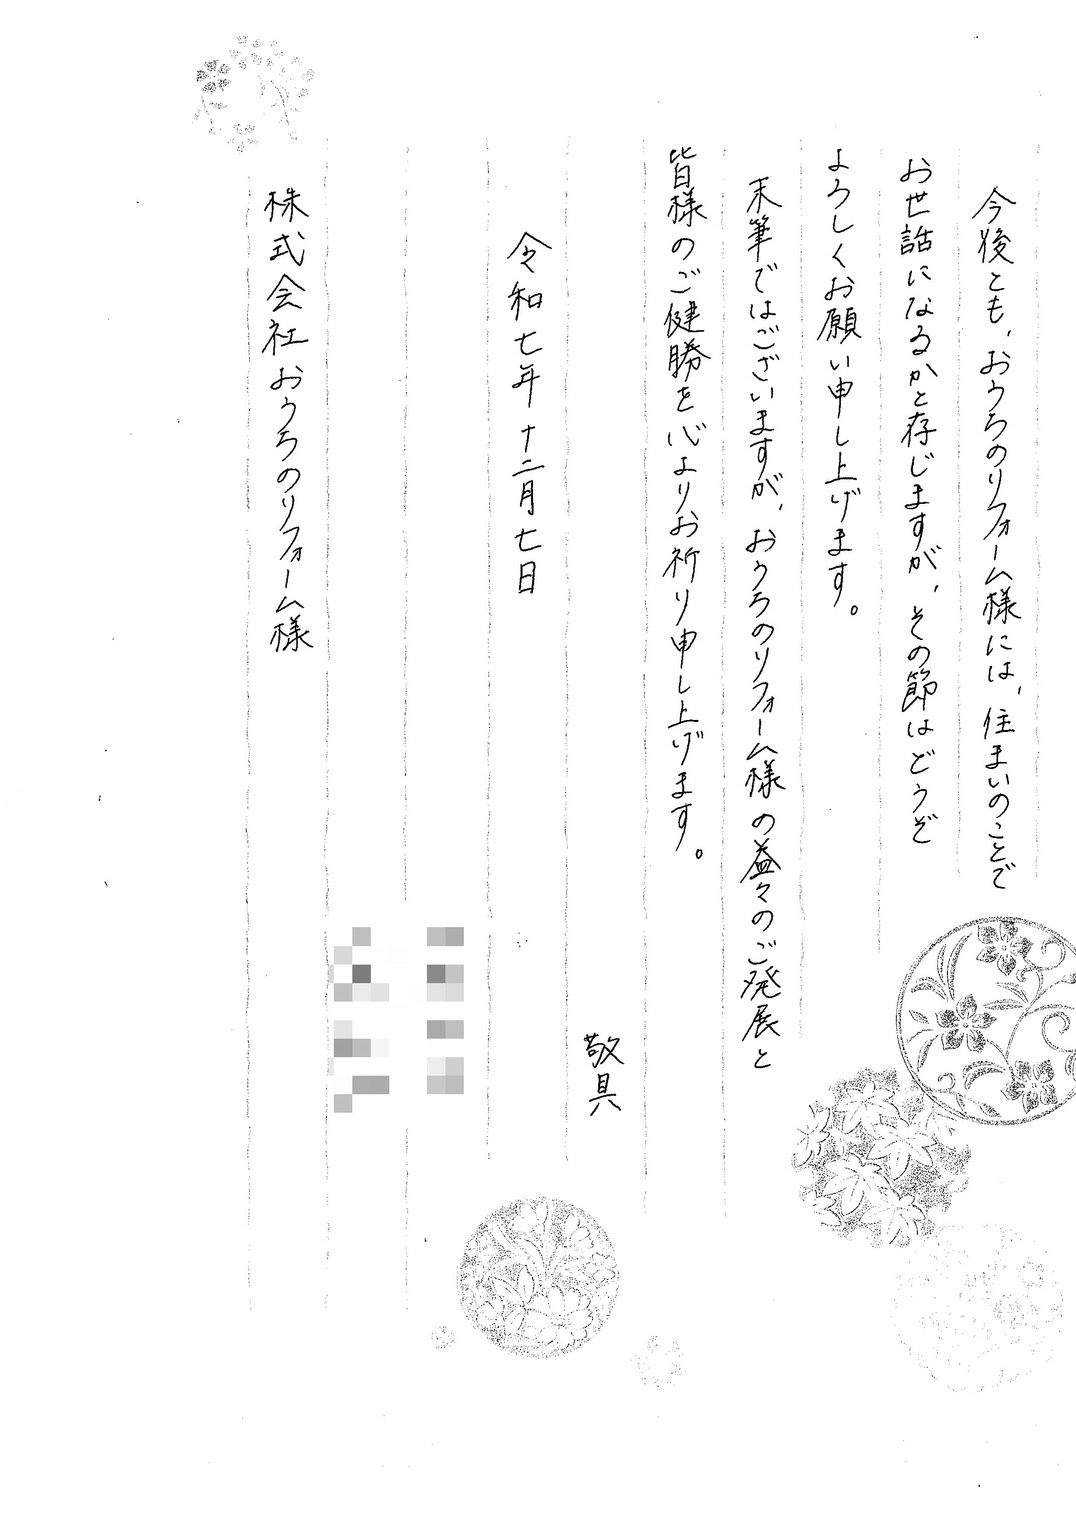 今後とも、おうちのリフォーム様には、住まいのことで
お世話になるかと存じますが、その節はどうぞ
よろしくお願い申し上げます。
末筆ではございますが、おうちのリフォーム様の益々のご発展と
皆様のご健勝を心よりお祈り申し上げます。
敬具
令和七年十二月七日
株式会社おうちのリフォーム様